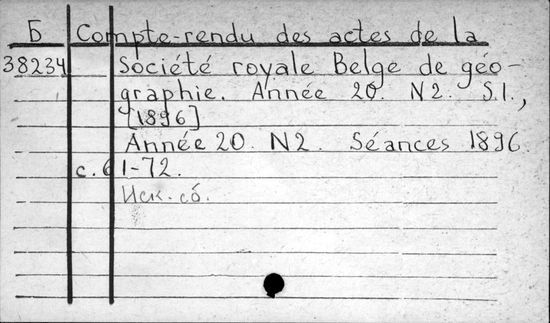 Б Compte-rendu des actes de la
38234 Société royale Belge de géo-
graphie. Année 20. N2. S.l.,
[1896]
Année 20. N2. Séances 1896.
c. 61-72.
Иск. сб.